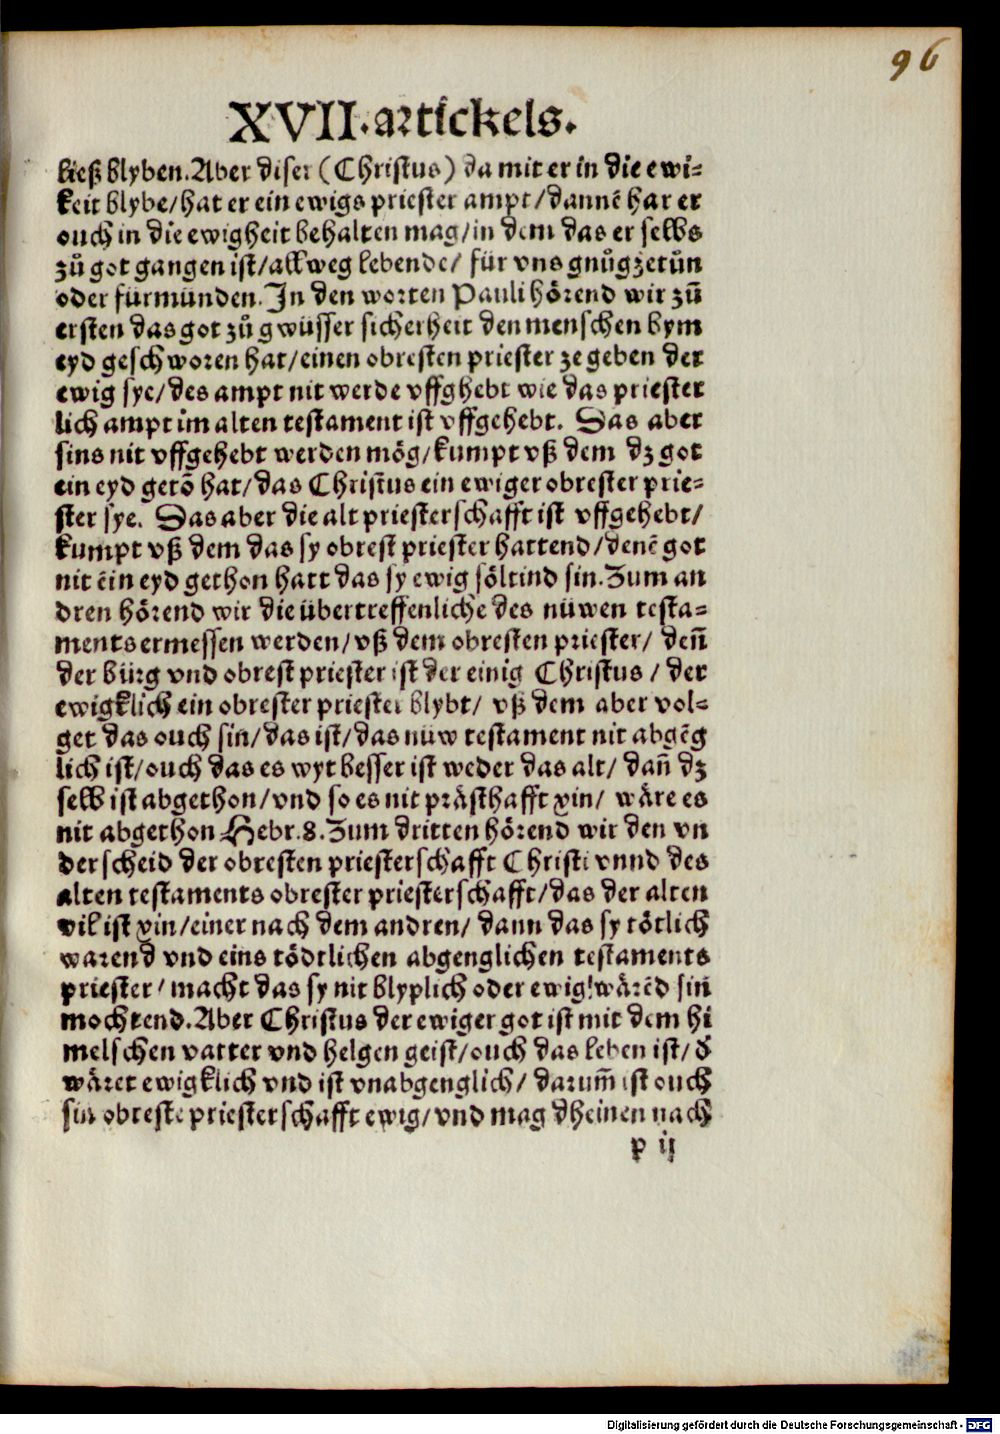 96
XVII. artickels.
ließ blyben. Aber diser (Christus) da mit er in die ewi-
keit blybe/ hat er ein ewigs priester ampt/ dannē har er
ouch in die ewigheit behalten mag/ in dem das er selbs
zů got gangen ist/ allweg lebende/ für vns gnůgzetůn
oder fürmünden. In den worten Pauli hörend wir zū
ersten das got zů gwüsser sicherheit den menschen bym
eyd geschworen hat/ einen obresten priester ze geben der
ewig sye/ des ampt nit werde vffghebt wie das priester
lich ampt im alten testament ist vffgehebt. Das aber
sins nit vffgehebt werden mög/ kumpt vß dem dz got
ein eyd getō hat/ das Christus ein ewiger obrester prie-
ster sye. Das aber die alt priesterschafft ist vffgehebt/
kumpt vß dem das sy obrest priester hattend/ denē got
nit ein eyd gethon hatt das sy ewig söltind sin. Zum an
dren hörend wir die übertreffenliche des nüwen testa-
ments ermessen werden/ vß dem obresten priester/ deñ
der bürg vnd obrest priester ist der einig Christus / der
ewigklich ein obrester priester blybt/ vß dem aber vol-
get das ouch sin/ das ist/ das nüw testament nit abgēg
lich ist/ ouch das es wyt besser ist weder das alt/ dañ dz
selb ist abgethon/ vnd so es nit prästhafft xin/ wäre es
nit abgethon Hebr. 8. Zum dritten hörend wir den vn
derscheid der obresten priesterschafft Christi vnnd des
alten testaments obrester priesterschafft/ das der alten
vil ist xin/ einer nach dem andren/ dann das sy tötlich
warend vnd eins tödtlichen abgenglichen testaments
priester/ macht das sy nit blyplich oder ewig wärēd sin
mochtend. Aber Christus der ewiger got ist mit dem hi
melschen vatter vnd helgen geist/ ouch das leben ist/ d̕
wäret ewigklich vnd ist vnabgenglich/ darum̄ ist ouch
sin obreste priesterschafft ewig/ vnd mag dheinen nach
p ij
Digitalisierung gefördert durch die Deutsche Forschungsgemeinschaft - DFG